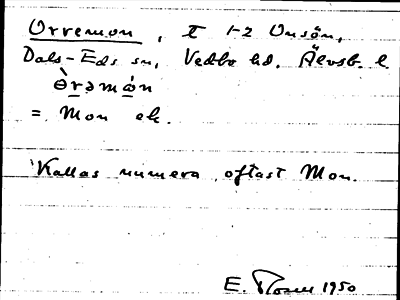 Orremon, t 1-2 Onsön,
Dals-Eds sn, Vedbo hd. Älvsb. l
Ɵ̀rəmón
= Mon ek.
Kallas numera oftast Mon.
E. Rosell 1950